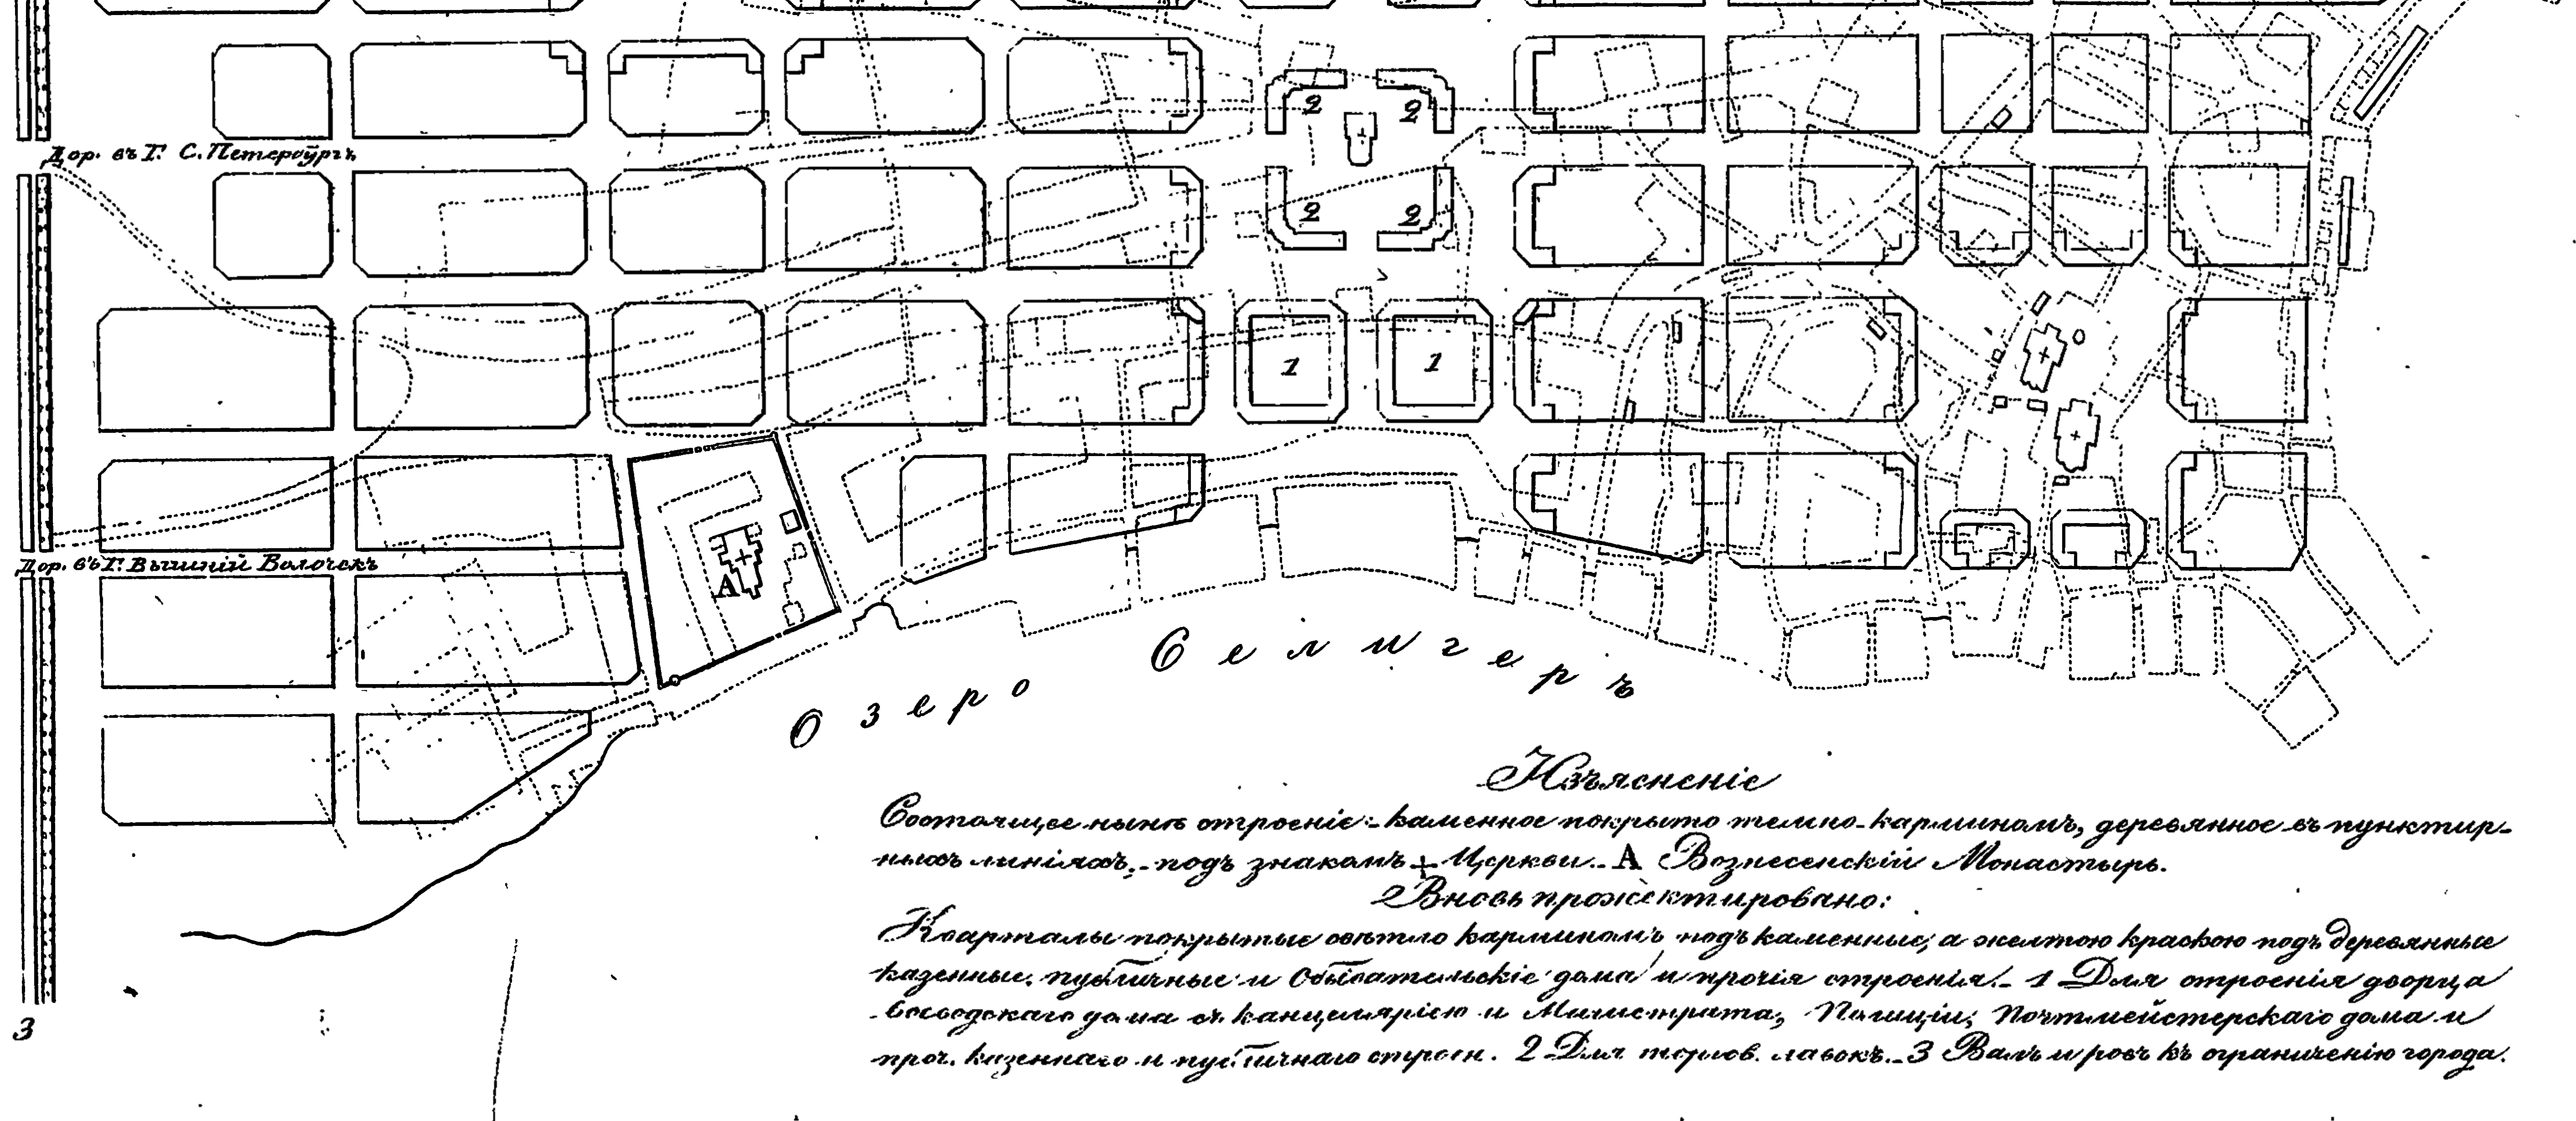 2 2
Дор. въ Г. С. Петербургъ
2 2
1 1
Дор. въ Г. Вышній Волочекъ
А
Озеро Селигеръ
Изъясненіе
Состоящее нынѣ строеніе:- каменное покрыто темно-карминомъ, деревянное въ пунктир-
ныхъ линіяхъ,- подъ знакомъ + Церкви.- А Вознесенскій Монастырь.
Вновь прожектировано:
Кварталы покрытые свѣтло карминомъ подъ каменные, а желтою краскою подъ деревянные
казенные, публичные и обывательскіе дома и прочія строенія.- 1 Для строенія дворца
Воеводскаго дома съ канцеляріею и Магистрата, Полиціи, Почтмейстерскаго дома и
проч. казеннаго и публичнаго строен. 2 Для торгов. лавокъ.- 3 Валъ и ровъ къ ограниченію города.
3